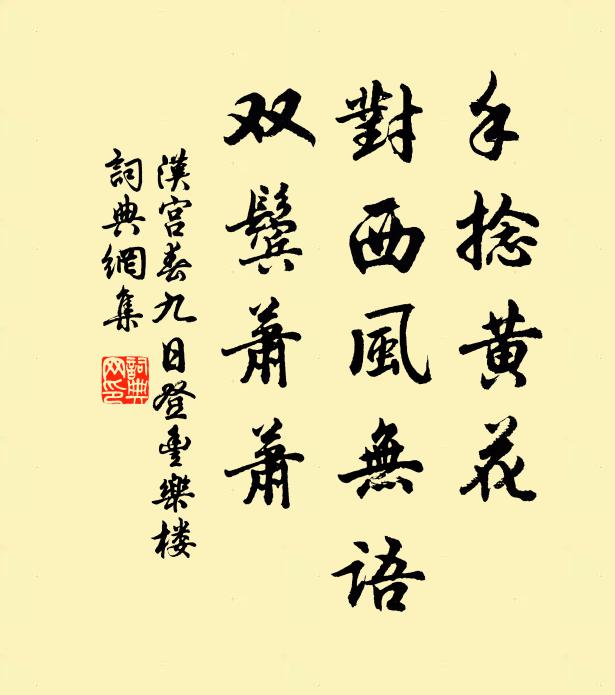 手捻黄花
對西風無語
双鬓萧萧
漢宮春九日登豐樂楼
詞典網集
詞典
网印